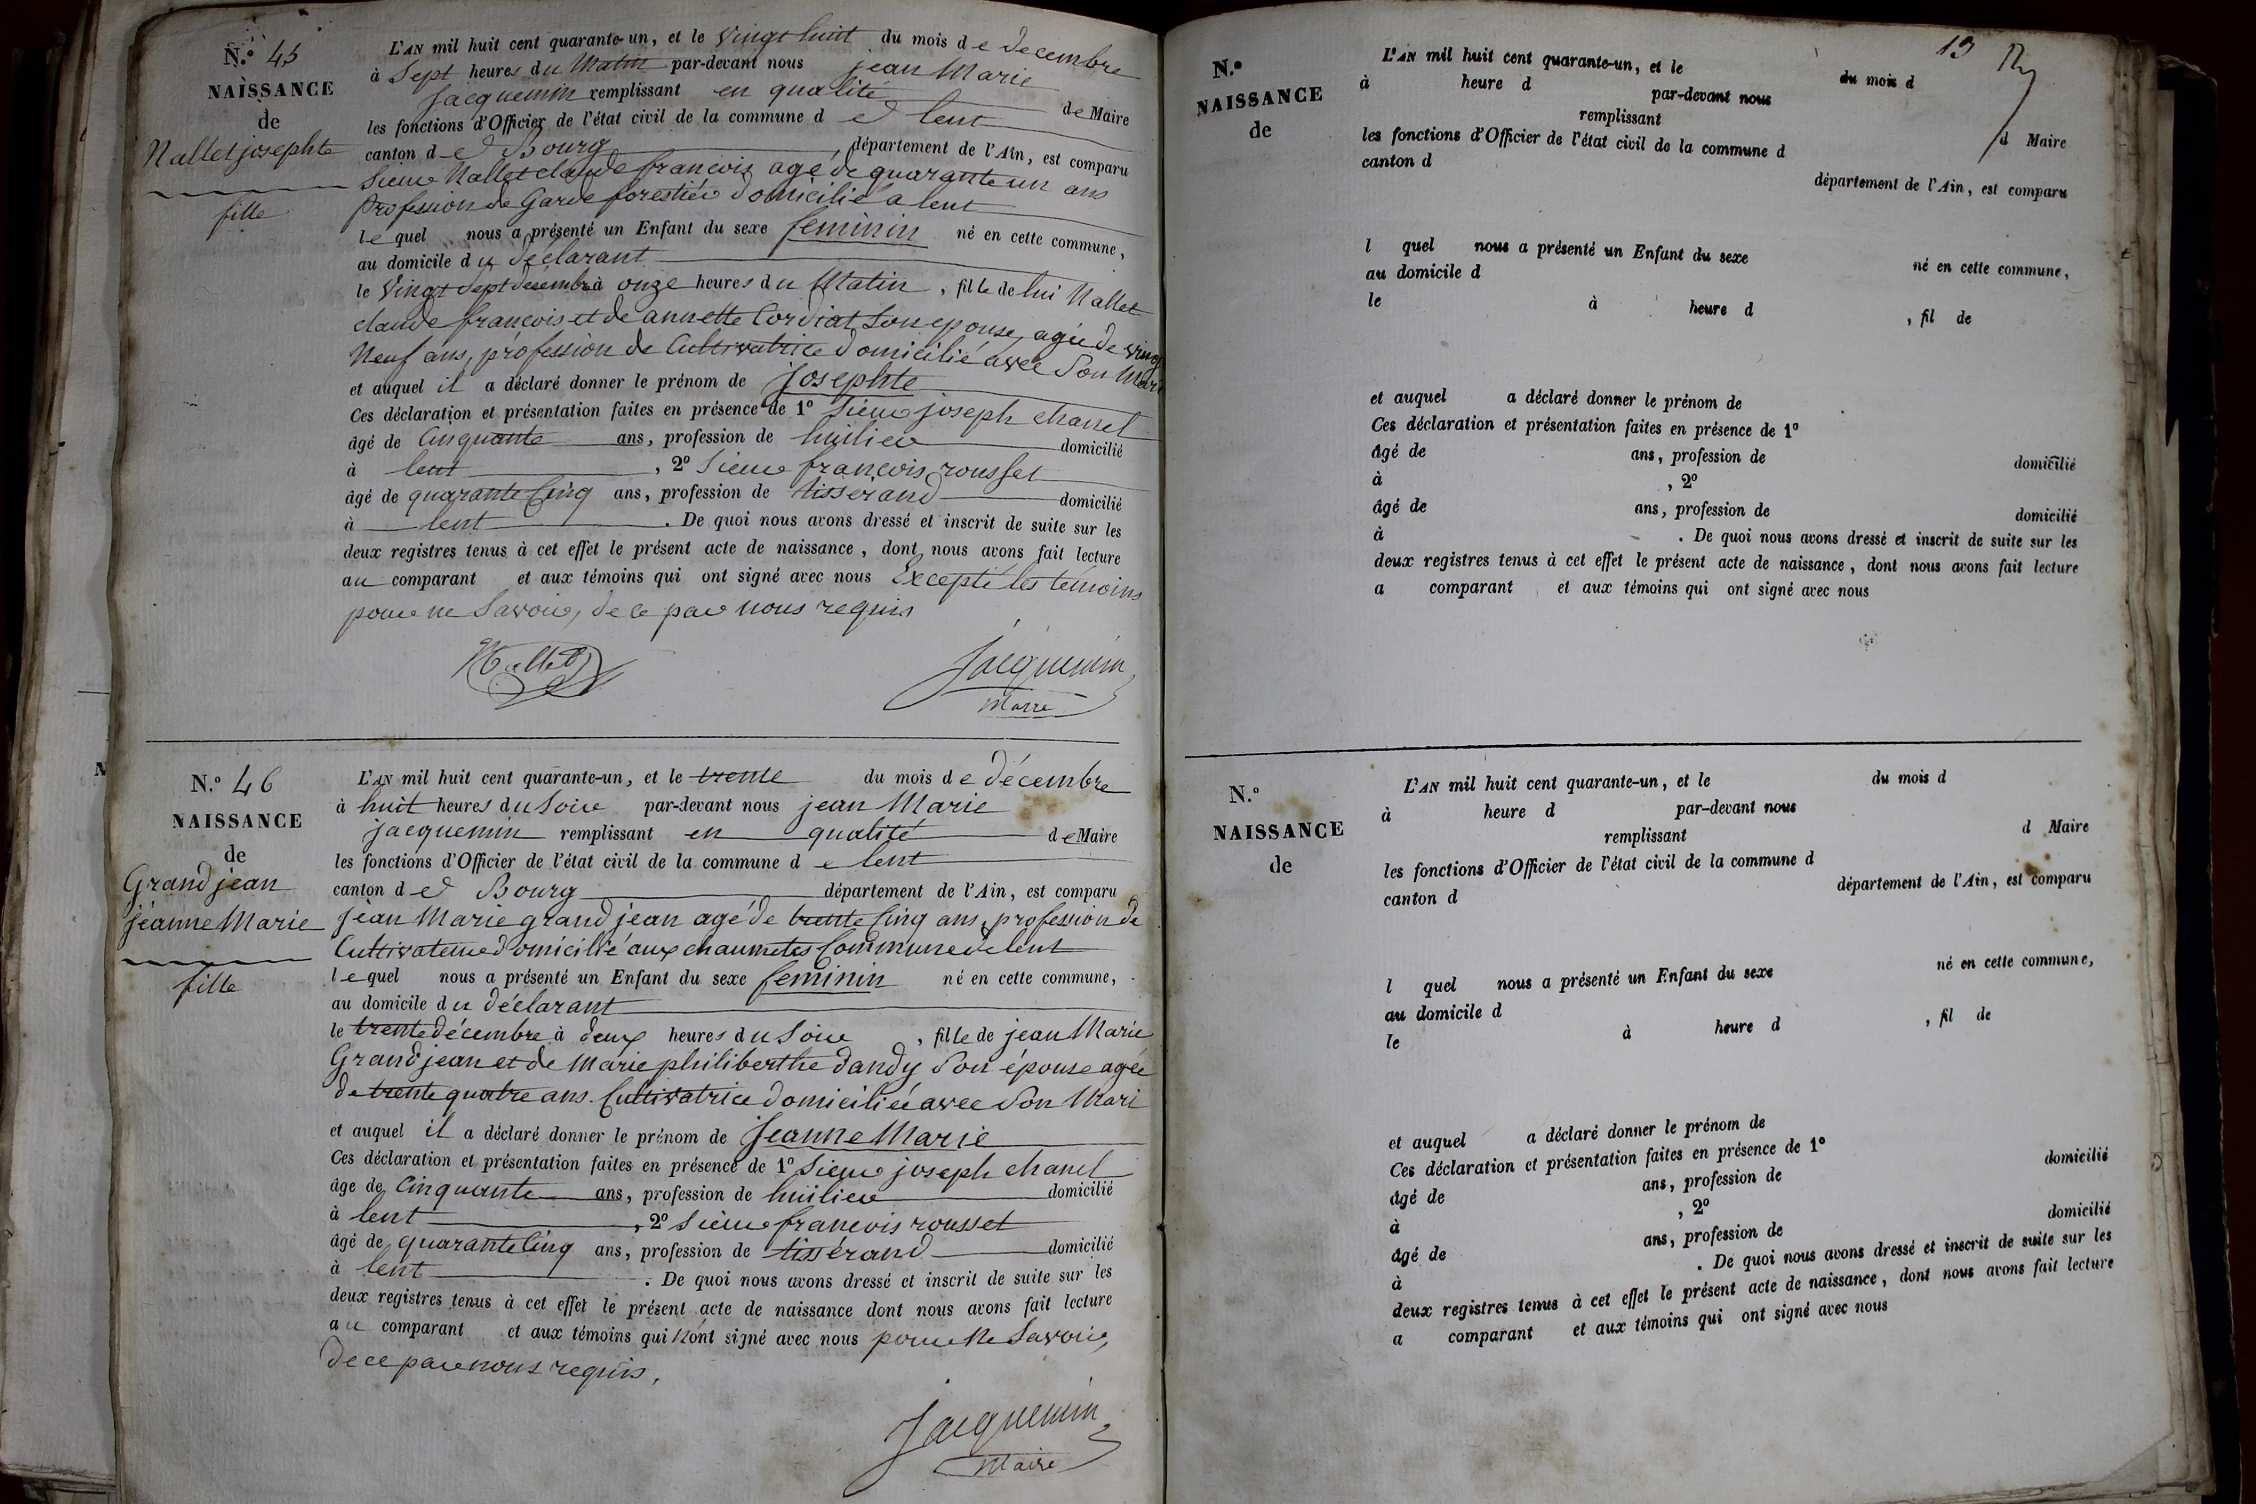 N.º 45
NAISSANCE
de
Nallet josephte
fille
L'AN mil huit cent quarante-un, et le Vingt huit du mois de decembre
à Sept heures du Matin par-devant nous jean Marie
Jacquemin remplissant en qualité de Maire
les fonctions d'Officier de l'état civil de la commune de lent
canton de Bourg, département de l'Ain, est comparu
Sieur Nallet claude francois agé de quarante un ans
Profession de Garde forestier domicilié a lent
lequel nous a présenté un Enfant du sexe feminin né en cette commune,
au domicile du déclarant
le Vingt Sept decembre à onze heures du Matin, fille de lui Nallet
claude francois et de annette Cordiat Son epouse, agée de vingt
Neuf ans, profession de Cultivatrice domicilié avec Son Mari
et auquel il a déclaré donner le prénom de josephte
Ces déclaration et présentation faites en présence de 1º Sieur joseph chanel
âgé de Cinquante ans, profession de huilier domicilié
à lent, 2º Sieur francois rousset
âgé de quarante Cinq ans, profession de tissérand domicilié
à lent. De quoi nous avons dressé et inscrit de suite sur les
deux registres tenus à cet effet le présent acte de naissance, dont nous avons fait lecture
au comparant et aux témoins qui ont signé avec nous Excepté les temoins
pour ne Savoir, de ce par nous requis
Nallet
Jacquemin
Maire
N.º 46
NAISSANCE
de
Grandjean
jéanne Marie
fille
L'AN mil huit cent quarante-un, et le trente du mois de décembre
à huit heures du Soir par-devant nous jean Marie
jacquemin remplissant en qualité de Maire
les fonctions d'Officier de l'état civil de la commune de lent
canton de Bourg département de l'Ain, est comparu
jean Marie grandjean agé de trente Cinq ans, profession de
Cultivateur domicilié aux chaumetes Commune de lent
lequel nous a présenté un Enfant du sexe feminin né en cette commune,
au domicile du déclarant
le trente décembre à deux heures du Soir, fille de jean Marie
Grandjean et de Marie philiberthe dandy Son épouse agée
de trente quatre ans. Cultivatrice domiciliée avec Son Mari
et auquel il a déclaré donner le prénom de Jeanne Marie
Ces déclaration et présentation faites en présence de 1º Sieur joseph chanel
âge de Cinquante ans, profession de huilier domicilié
à lent, 2º Sieur francois rousset
âgé de quarante Cinq ans, profession de tissérand domicilié
à lent. De quoi nous avons dressé et inscrit de suite sur les
deux registres tenus à cet effet le présent acte de naissance dont nous avons fait lecture
au comparant et aux témoins qui n'ont signé avec nous pour ne Savoir,
de ce par nous requis.
Jacquemin
Maire
19
N.º
NAISSANCE
de
L'AN mil huit cent quarante-un, et le du mois d
à heure d par-devant nous
remplissant d Maire
les fonctions d'Officier de l'état civil de la commune d
canton d département de l'Ain, est comparu
l quel nous a présenté un Enfant du sexe né en cette commune,
au domicile d
le à heure d , fil de
et auquel a déclaré donner le prénom de
Ces déclaration et présentation faites en présence de 1º
âgé de ans, profession de domicilié
à , 2º
âgé de ans, profession de domicilié
à . De quoi nous avons dressé et inscrit de suite sur les
deux registres tenus à cet effet le présent acte de naissance, dont nous avons fait lecture
a comparant et aux témoins qui ont signé avec nous
N.º
NAISSANCE
de
L'AN mil huit cent quarante-un, et le du mois d
à heure d par-devant nous
remplissant d Maire
les fonctions d'Officier de l'état civil de la commune d
canton d département de l'Ain, est comparu
l quel nous a présenté un Enfant du sexe né en cette commune,
au domicile d
le à heure d , fil de
et auquel a déclaré donner le prénom de
Ces déclaration et présentation faites en présence de 1º
âgé de ans, profession de domicilié
à , 2º
âgé de ans, profession de domicilié
à . De quoi nous avons dressé et inscrit de suite sur les
deux registres tenus à cet effet le présent acte de naissance, dont nous avons fait lecture
a comparant et aux témoins qui ont signé avec nous